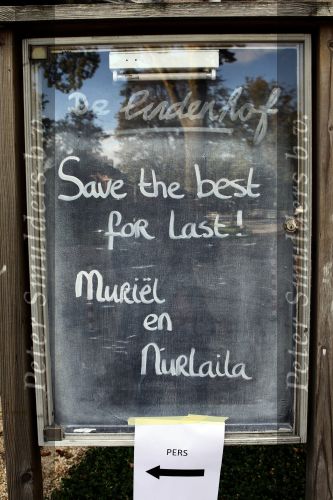 De Lindenhof
Save the best
for last!
Muriël
en
Nurlaila
PERS
Peter Smulders b.v.
Peter Smulders b.v.